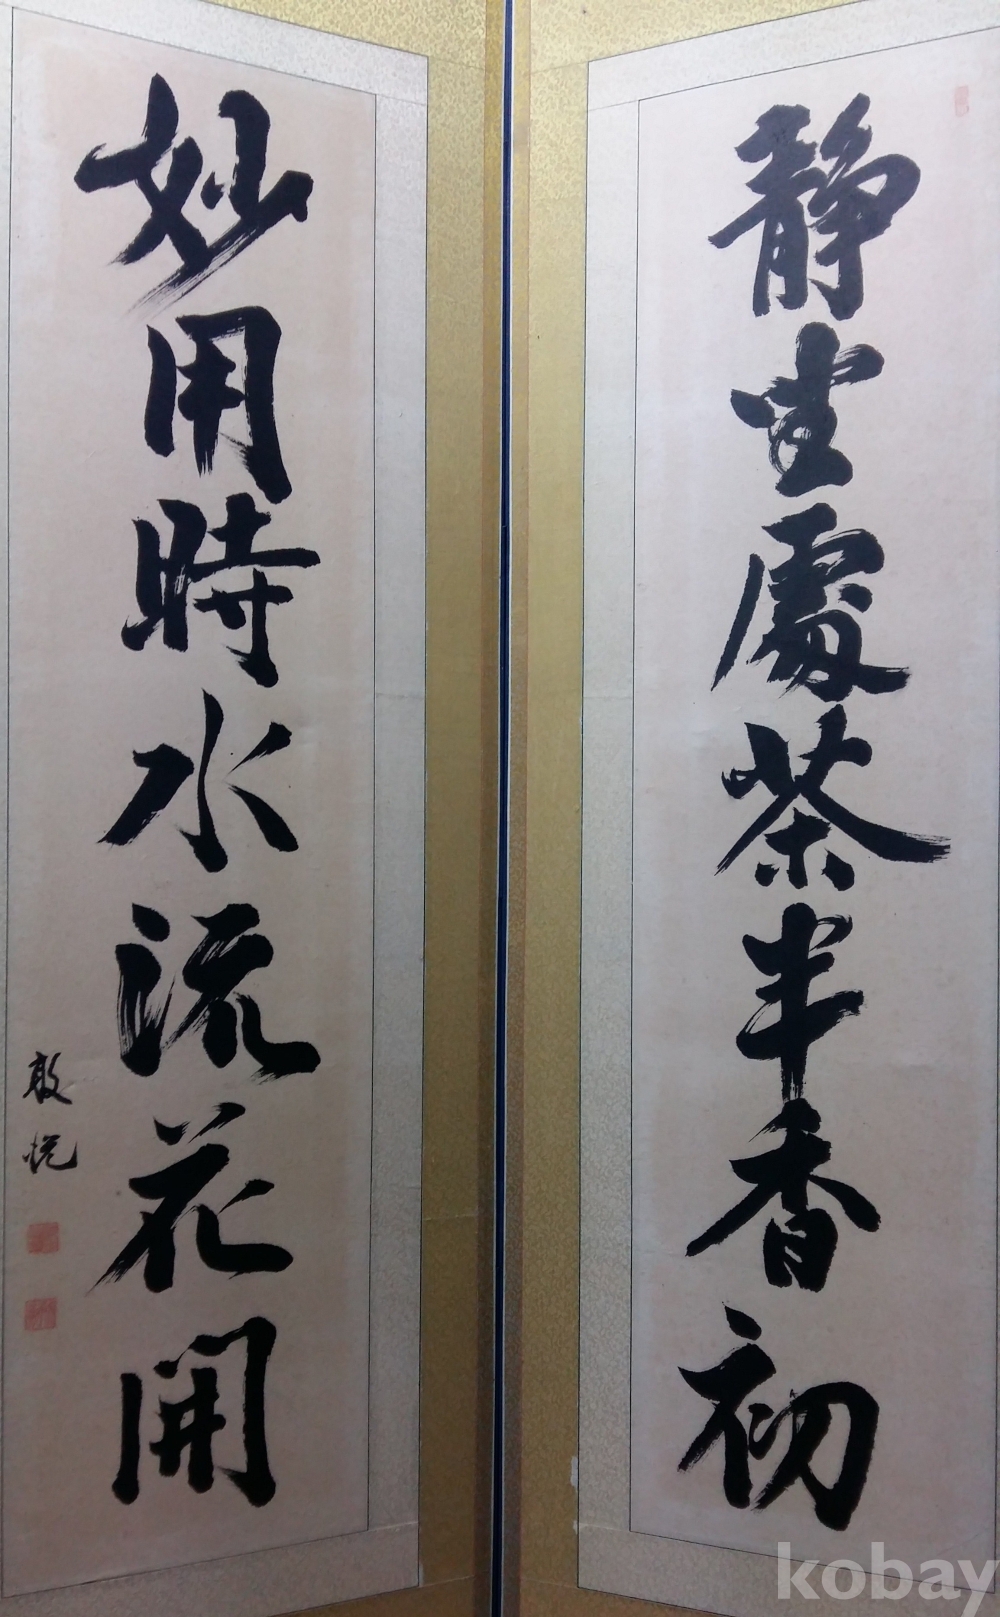 靜坐處茶半香初
妙用時水流花開
敬悦
kobay